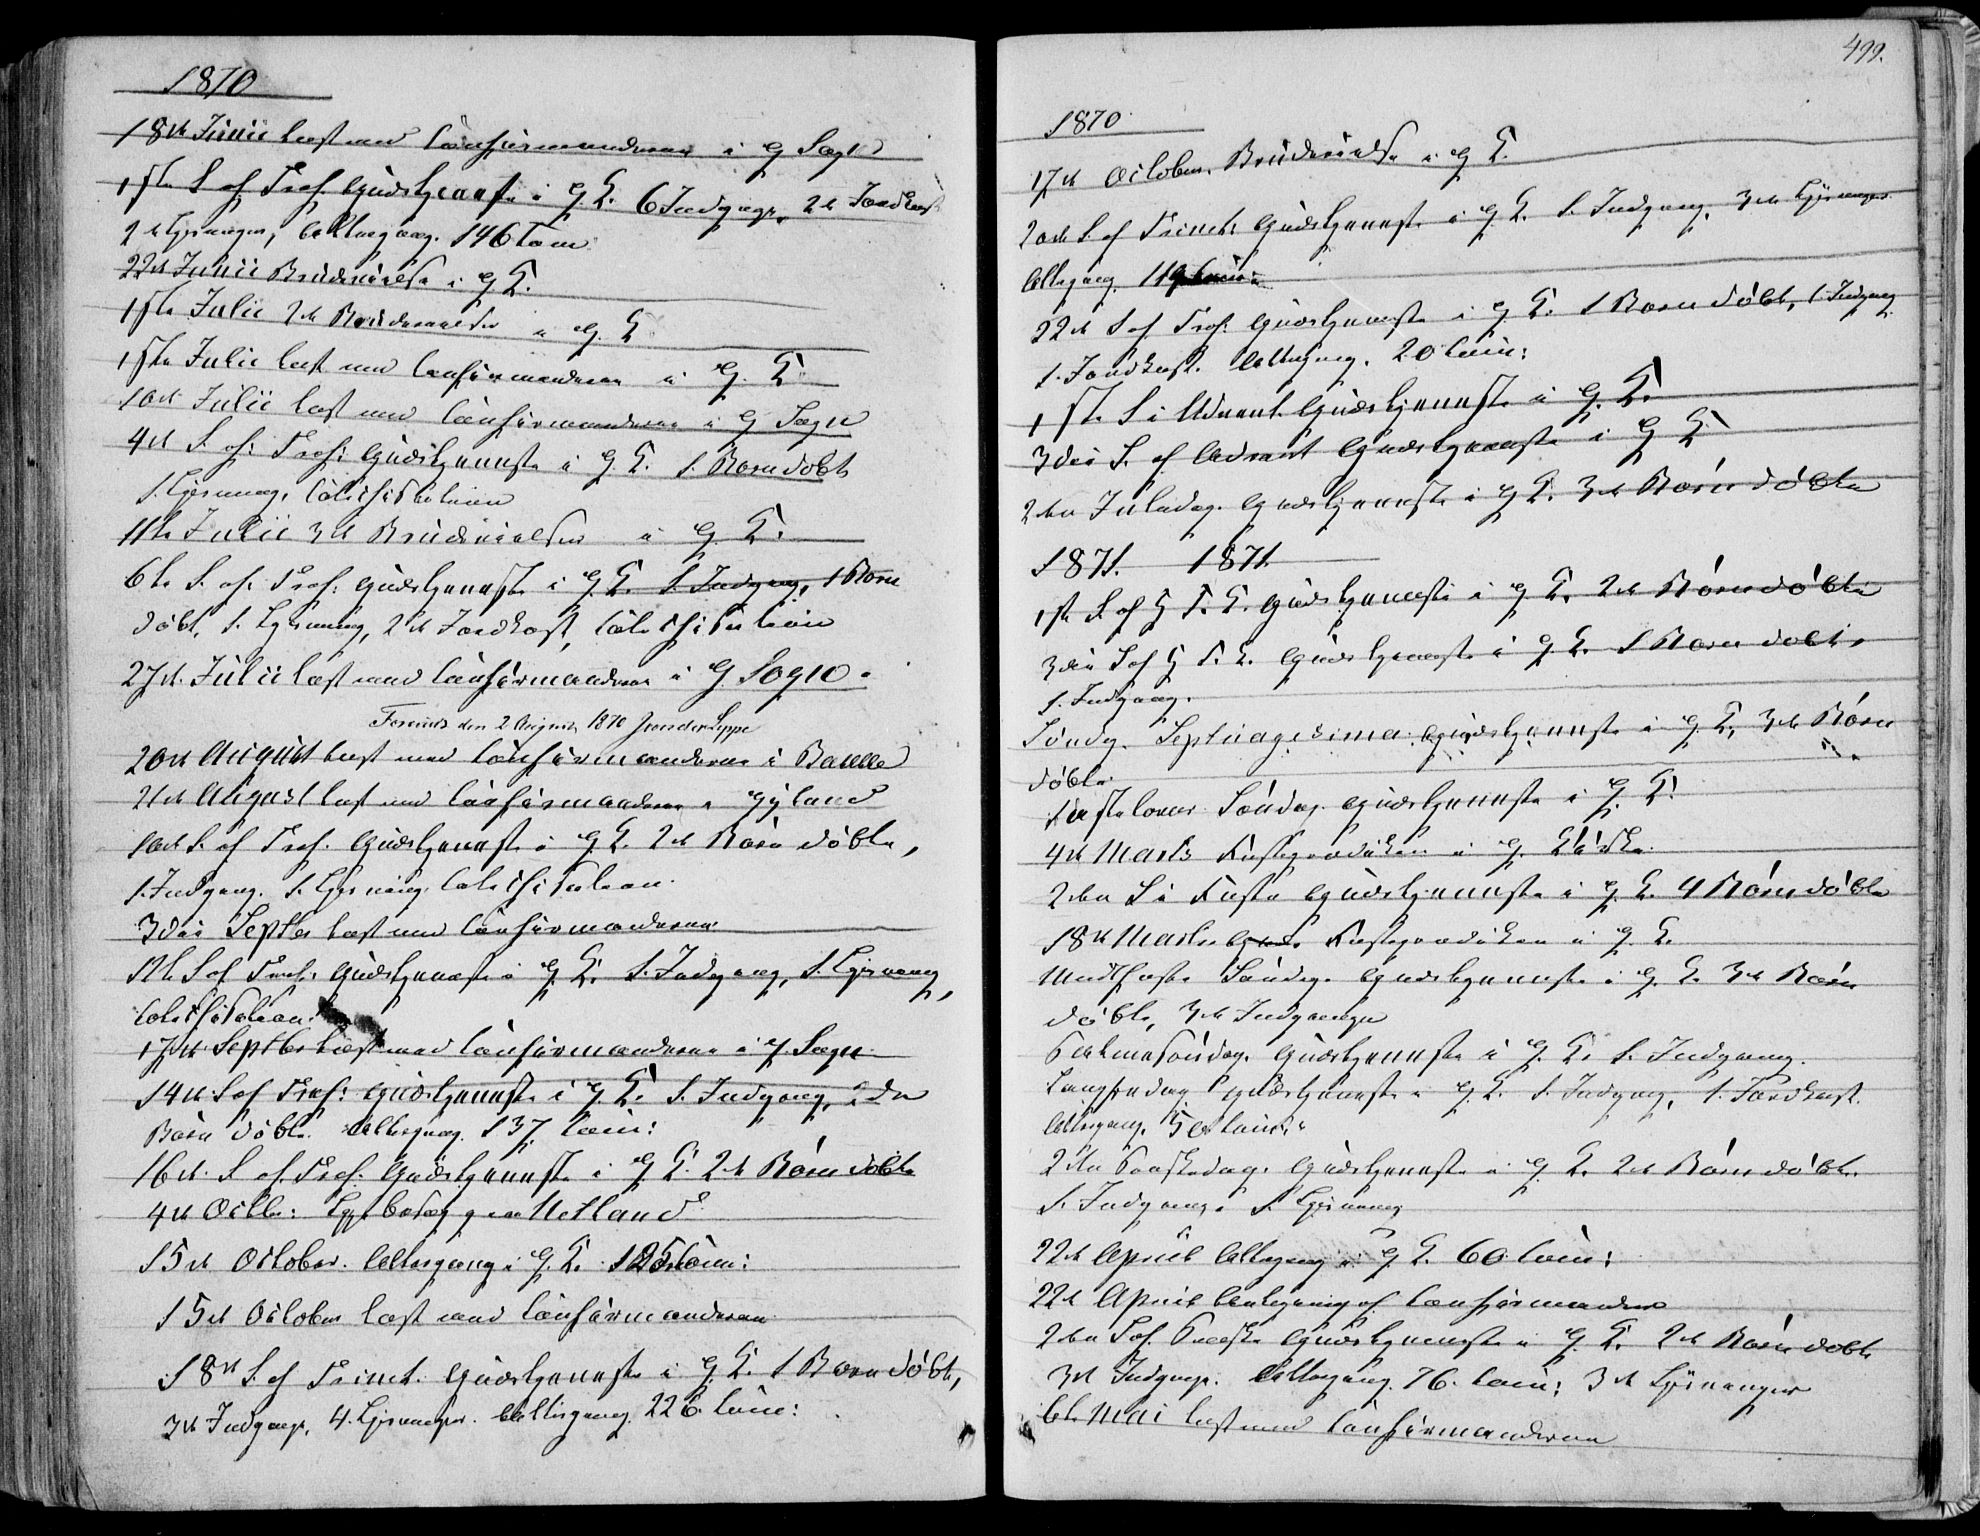 1870
18de Junii læst med Confirmanderne i G Sogn
1ste S. ef. Tref. Gudstjeneste i G. K. 6 Indgange, 2de Jordkast
2de Ljsninger, Altergang. 146 Com:
22de Junii Brudevielse i G K.
1ste Julii 2de Brudevielser i G. K
1ste Julii læst med Confirmanderne i G. K
10de Julii læst med Confirmanderne i G Sogn
4de S. ef: Tref: Gudstjeneste i G K. 1. Barn døbt
1. Ljsning, Catechisation
11te Julii 3de Brudevielser i G. K.
6te S. ef. Tref. Gudstjeneste i G. K. 1. Indgang, 1 Barn
døbt, 1. Ljsning, 2de Jordkast, Catechisation
27de Julii læst med Confirmanderne i G. Sogn.
den 2 August 1870
20de August læst med Confirmanderne i Bakke
21de August læst med Confirmanderne i Gyland
10de S. ef Tref. Gudstjeneste i G. K. 2de Børn døbte,
1. Indgang. 1. Ljsning. Catechisation.
3die Septbr læst med Confirmanderne
12te S ef Tref: Gudstjeneste i G. K. 1. Indgang, 1. Ljsning,
Catechisation.
17de Septbr læst med Confirmanderne i G. Sogn.
14de S ef Tref: Gudstjeneste i G. K. 1. Indgang, 2de
Børn døbte. Altergang. 137 Com:
16de S. ef. Tref: Gudstjeneste i G K. 2de Børn døbte
4de Octbr: Netland
15de October. Altergang i G. K. 125 Com:
15de October læst med Confirmanderne
18de S. ef Trinit. Gudstjeneste i G. K. 1 Barn døbt,
3de Indgange, 4. Ljsninger. Altergang 226 Com:
499.
1870
17de October. Brudevielse i G K.
20de S. ef Trinit: Gudstjeneste i G K. 1. Indgang, 3de Ljsninger
Altergang. 119 Com:
22de S ef Tref: Gudstjeneste i G. K. 1 Barn døbt, 1 Indgang
1. Jordkast. Altergang. 20 Com:
1ste S i Advent Gudstjeneste i G. K.
3die S. ef Advent Gudstjeneste i G K
2den Juledag. Gudstjeneste i G K. 3de Børn døbte
1871. 1871
1ste S ef H. 3. K. Gudstjeneste i G. K. 2de Børn døbte
3die S ef H 3. K. Gudstjeneste i G K. 1 Barn døbt.
1. Indgang.
Søndg. Septuagesima Gudstjeneste i G. K, 3de Børn
døbte
Fastelavns Søndag. Gudstjeneste i G. K.
4de Marts Fasteprædiken i G. Kirke
2den S i Faste Gudstjeneste i G. K. 4 Børn døbte
18de Marts Fasteprædiken i G. K.
Midtfaste Søndag. Gudstjeneste i G. K. 3de Børn
døbte, 3de Indgange
Palmesøndag. Gudstjeneste i G. K. 1. Indgang.
Langfredag Gudstjeneste i G. K. 1. Indgang, 1. Jordkast.
Altergang. 50 Com:
2den Paaskedag. Gudstjeneste i G. K. 2de Børn døbte
1. Indgang. 1. Ljsning
22de April Altergang i G K. 60 Com:
22de April Antegning af Confirmander
2den S ef. Paaske Gudstjeneste i G. K. 2de Børn døbte
3de Indgange. Altergang. 76. Com; 3de Ljsninger
6te Mai læst med Confirmanderne